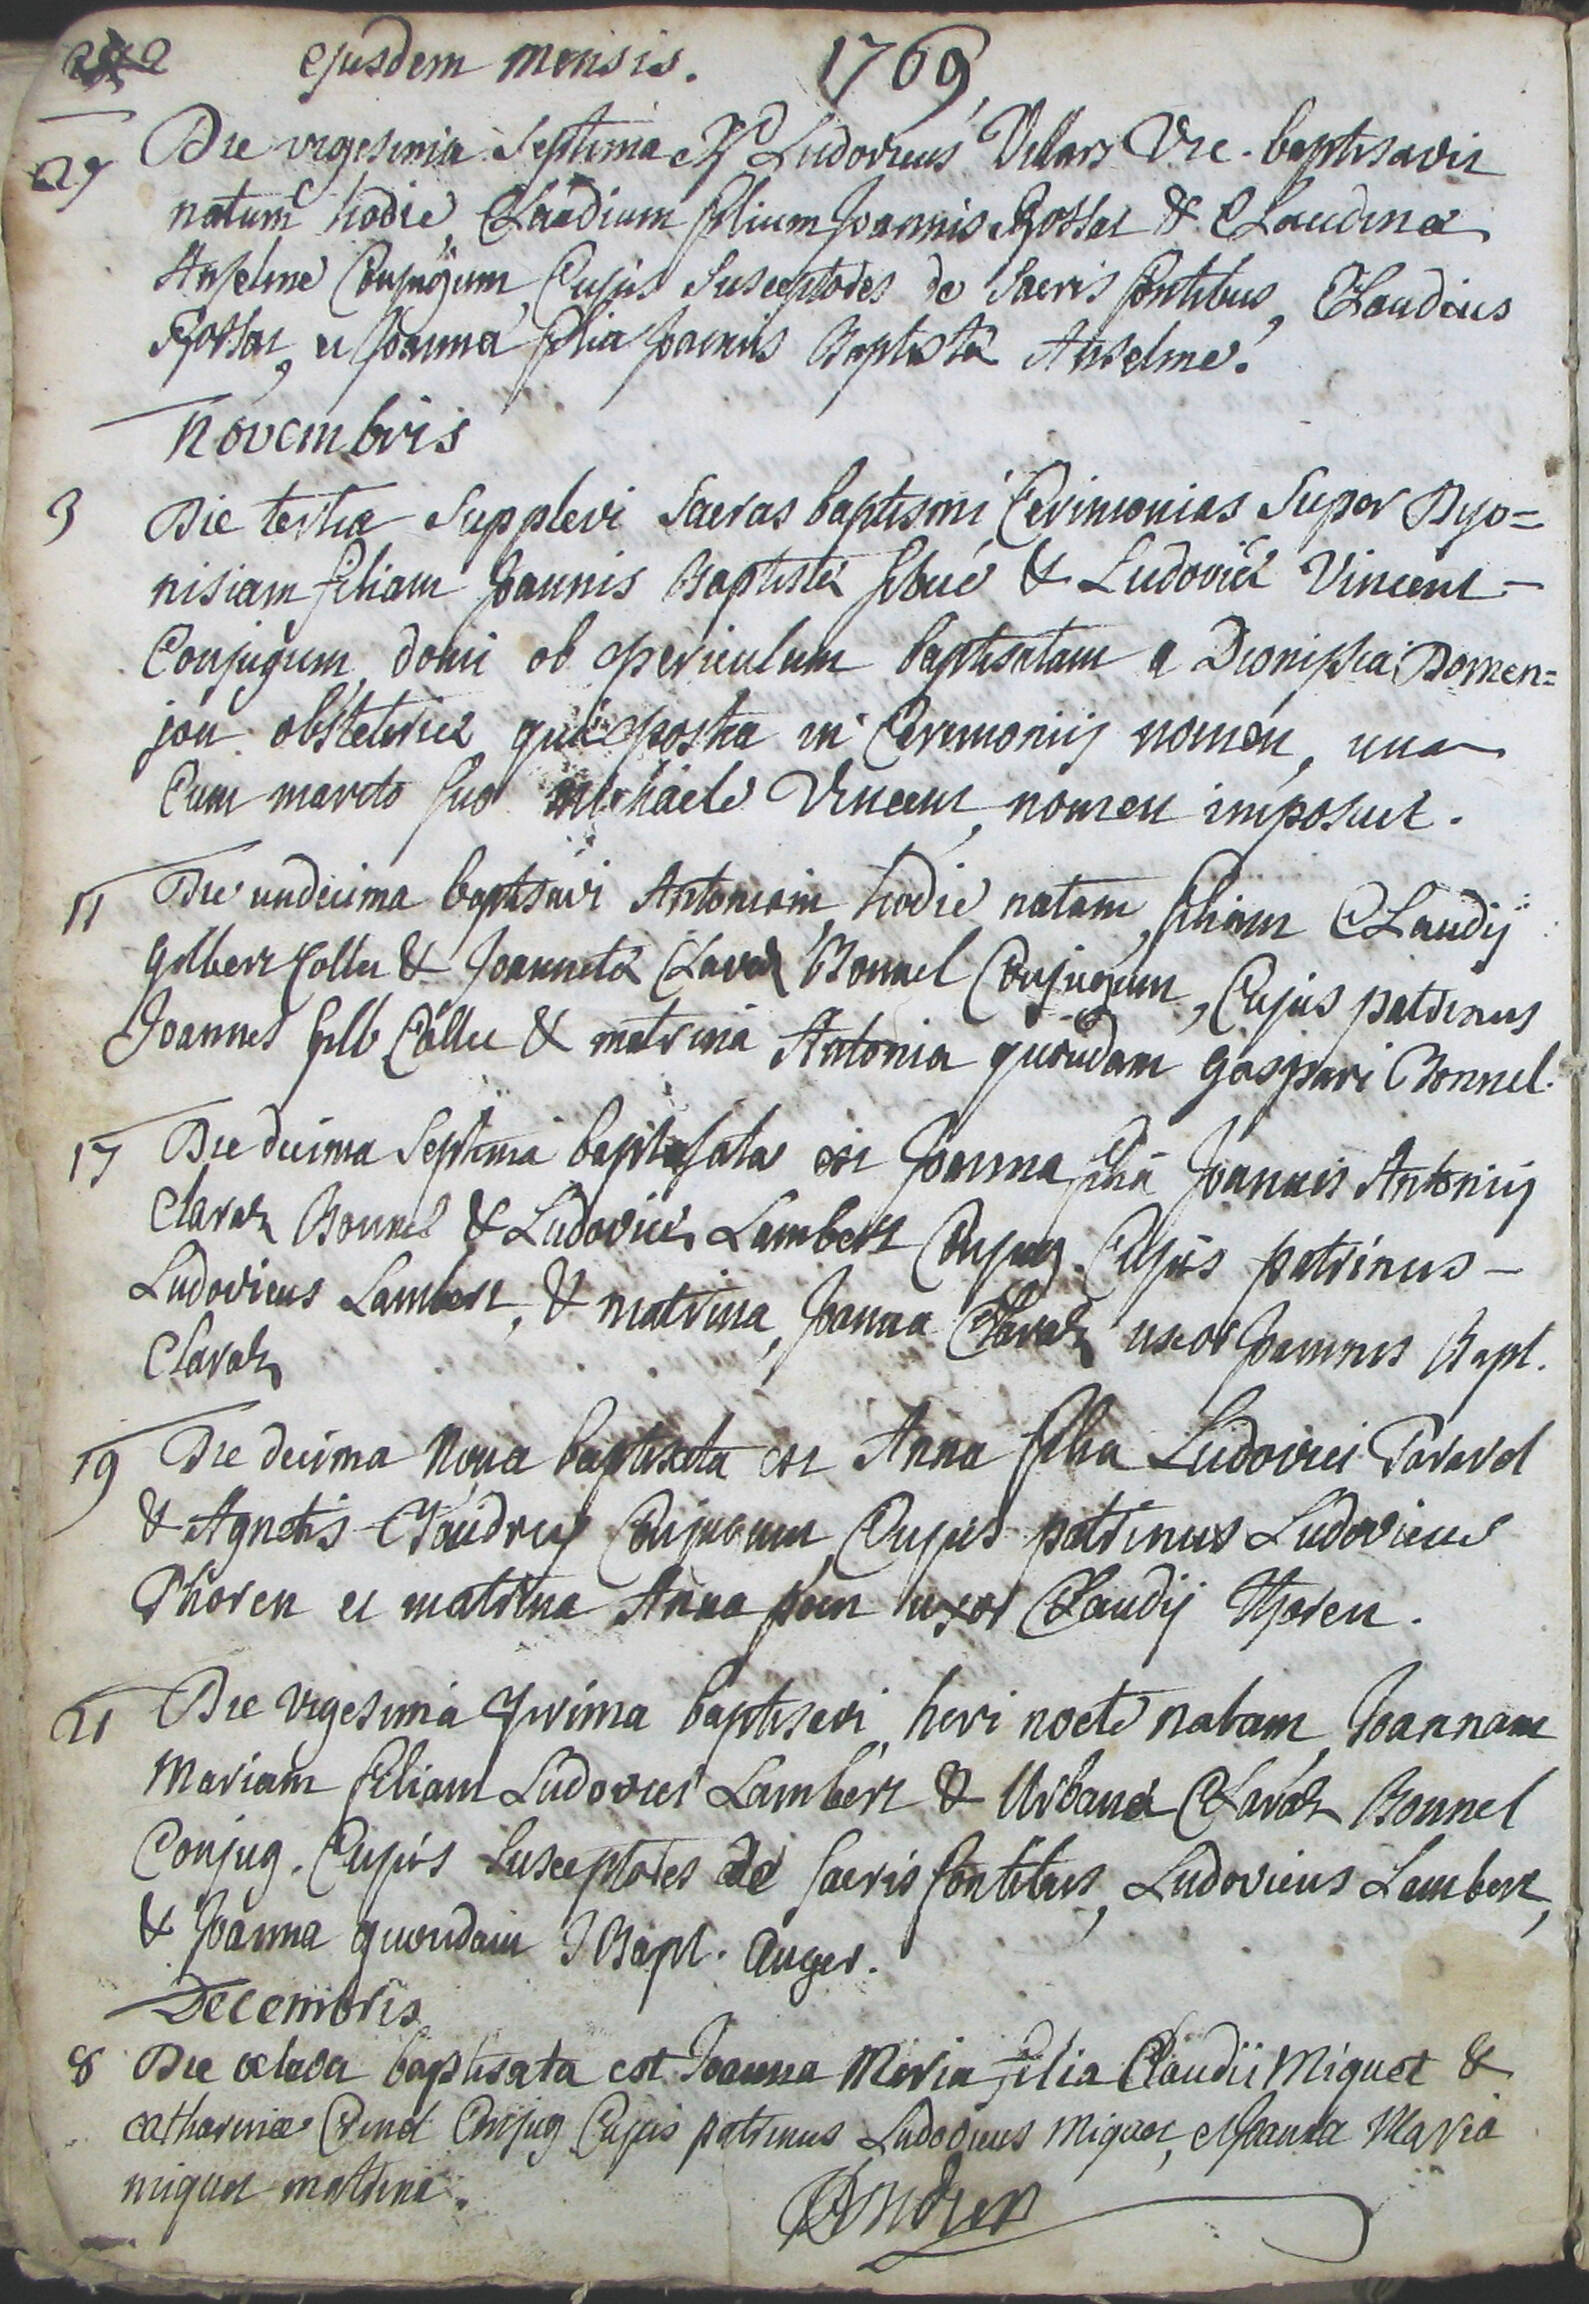 ejusdem mensis. 1769
27 Die vigesima septima Ludovicus Villars Vic. baptisavit
natum hodie, Claudium filium Joannis Rossat & Claudinæ
Anselme Conjugum, Cujus Susceptores de Sacris fontibus, Claudius
Rossat, et Joanna filia Joannis Baptistæ Anselme.
Novembris
3 Die tertia Supplevi Sacras baptismi Cerimonias Super Dyo=
nisiam filiam Joannis Baptistæ & Ludovicæ Vincent
Conjugum, domi ob periculum baptisatam a Dionisia Domen=
jou obstetrice quæ postea in Ceremoniis nomen, una
Cum marito suo michaele Vincent, nomen imposuit.
11 Die undecima baptisavi Antoniam, hodie natam, filiam Claudij
gilbert Collet & Joannetæ Claraz Bonnel Conjugum, Cujus patrinus
Joannes gilb Collet & matrina Antonia quondam gaspari Bonnel.
17 Die decima Septima baptisata est Joanna filia Joannis Antonij
Claraz Bonnel & Ludovicæ Lambert Conjug. Cujus patrinus
Ludovicus Lambert, & matrina, Joanna Claraz uxor Joannis Bapt.
Claraz
19 Die decima Nona baptisata est Anna filia Ludovici Paravel
& Agnetis Conjugum, Cujus patrinus Ludovicus
Thoren et matrina Anna uxor Claudij Thoren.
21 Die vigesima prima baptisavi heri nocte natam, Joannam
Mariam filiam Ludovici Lambert & Urbanæ Claraz Bonnel
Conjug. Cujus Susceptores de Sacris fontibus, Ludovicus Lambert,
& Joanna quondam J Bapt. Auger.
Decembris
8 Die octava baptisata est Joanna Maria filia Claudii Miquet &
catharinæ Conjug Cujus patrinus Ludovicus Miquet, et Joanna Maria
miquet matrina.